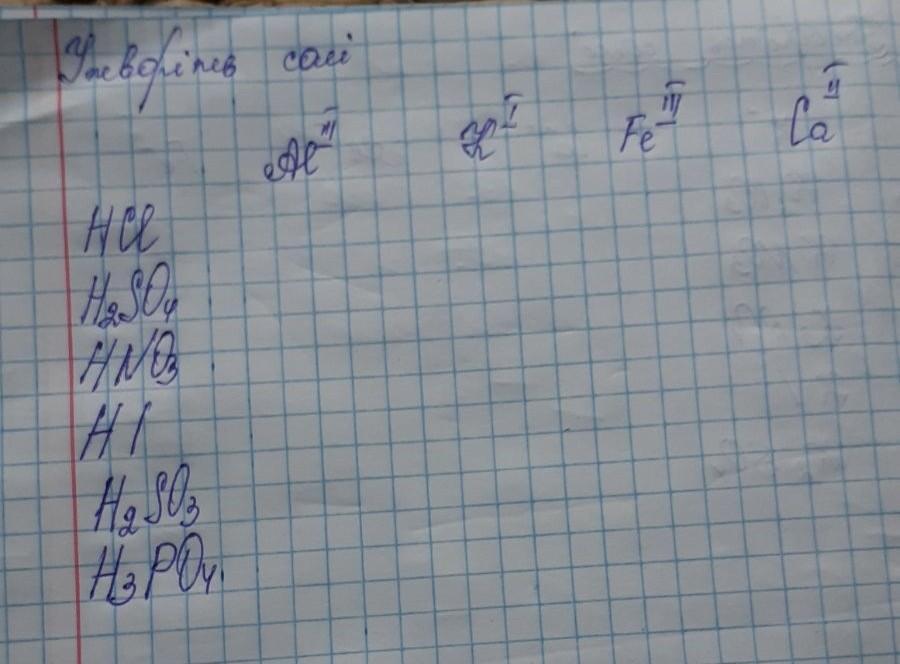 Утворіть солі
Al^III K^I Fe^III Ca^II
HCl
H₂SO₄
HNO₃
HI
H₂SO₃
H₃PO₄